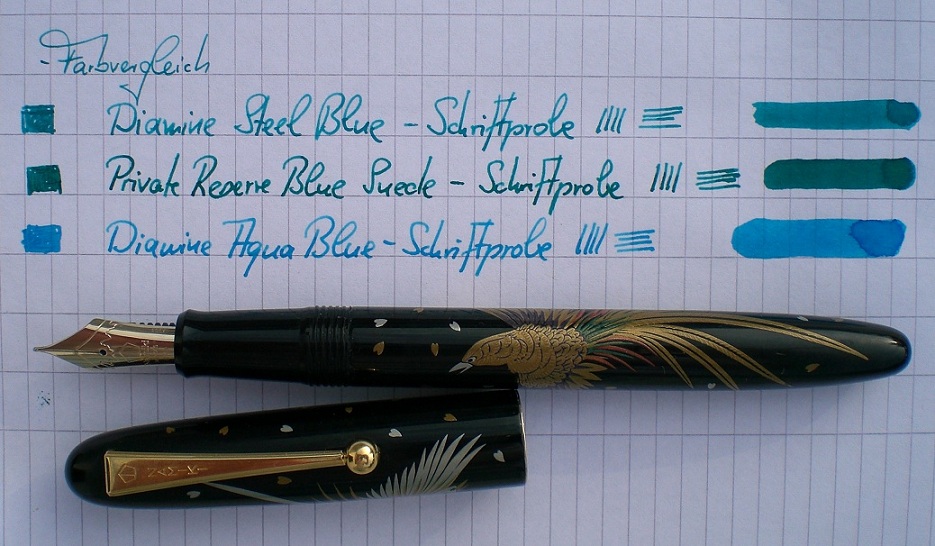 -Farbvergleich
Diamine Steel Blue - Schriftprobe
Private Reserve Blue Suede - Schriftprobe
Diamine Aqua Blue - Schriftprobe
NAMIKI